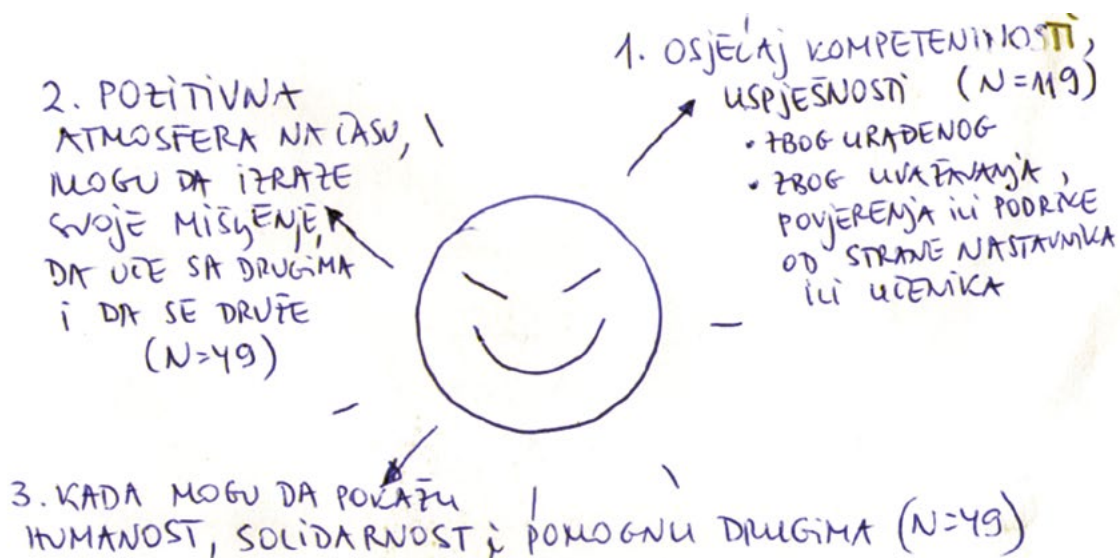 1. OSJEĆAJ KOMPETENTNOSTI,
USPJEŠNOSTI (N=119)
• ZBOG URAĐENOG
• ZBOG UVAŽAVANJA,
POVJERENJA ILI PODRŠKE
OD STRANE NASTAVNIKA
ILI UČENIKA
2. POZITIVNA
ATMOSFERA NA ČASU,
MOGU DA IZRAZE
SVOJE MIŠLJENJE,
DA UČE SA DRUGIMA
I DA SE DRUŽE
(N=49)
3. KADA MOGU DA POKAŽU
HUMANOST, SOLIDARNOST I POMOGNU DRUGIMA (N=49)